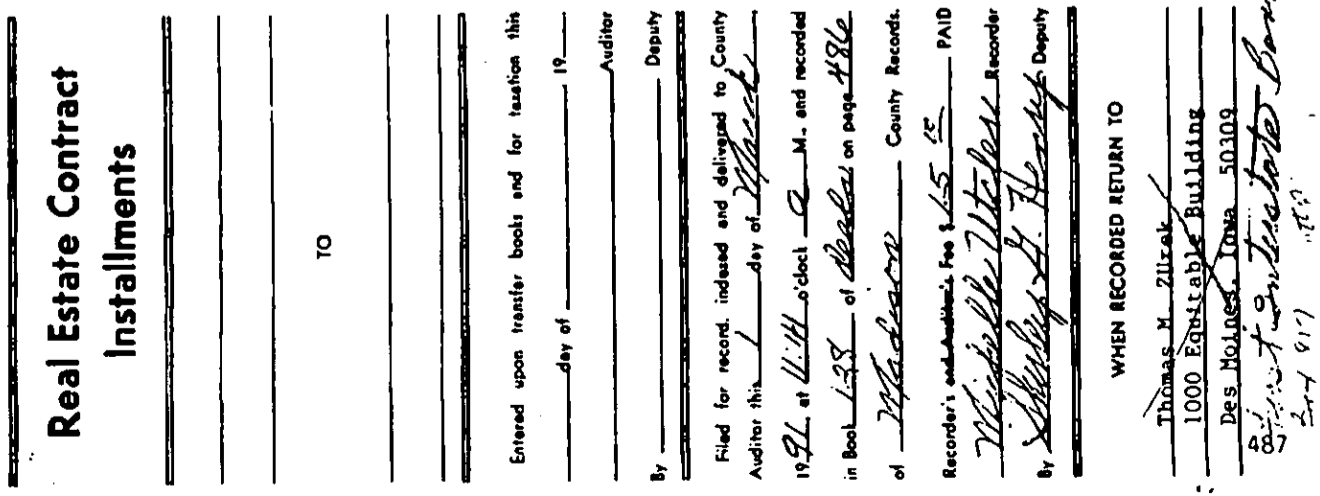 Real Estate Contract
Installments
TO
Entered upon transfer books and for taxation this
day of 19
Auditor
By Deputy
Filed for record, indexed and delivered to County
Auditor this 1 day of March
1991 at 11:41 o'clock A M., and recorded
in Book 128 of Deeds on page 486
of Madison County Records.
Recorder's and Auditor's Fee $ 15 PAID
Michelle Utsler Recorder
By Shirley H. Henry Deputy
WHEN RECORDED RETURN TO
Thomas M Zurek
1000 Equitable Building
Des Moines, Iowa 50309
487